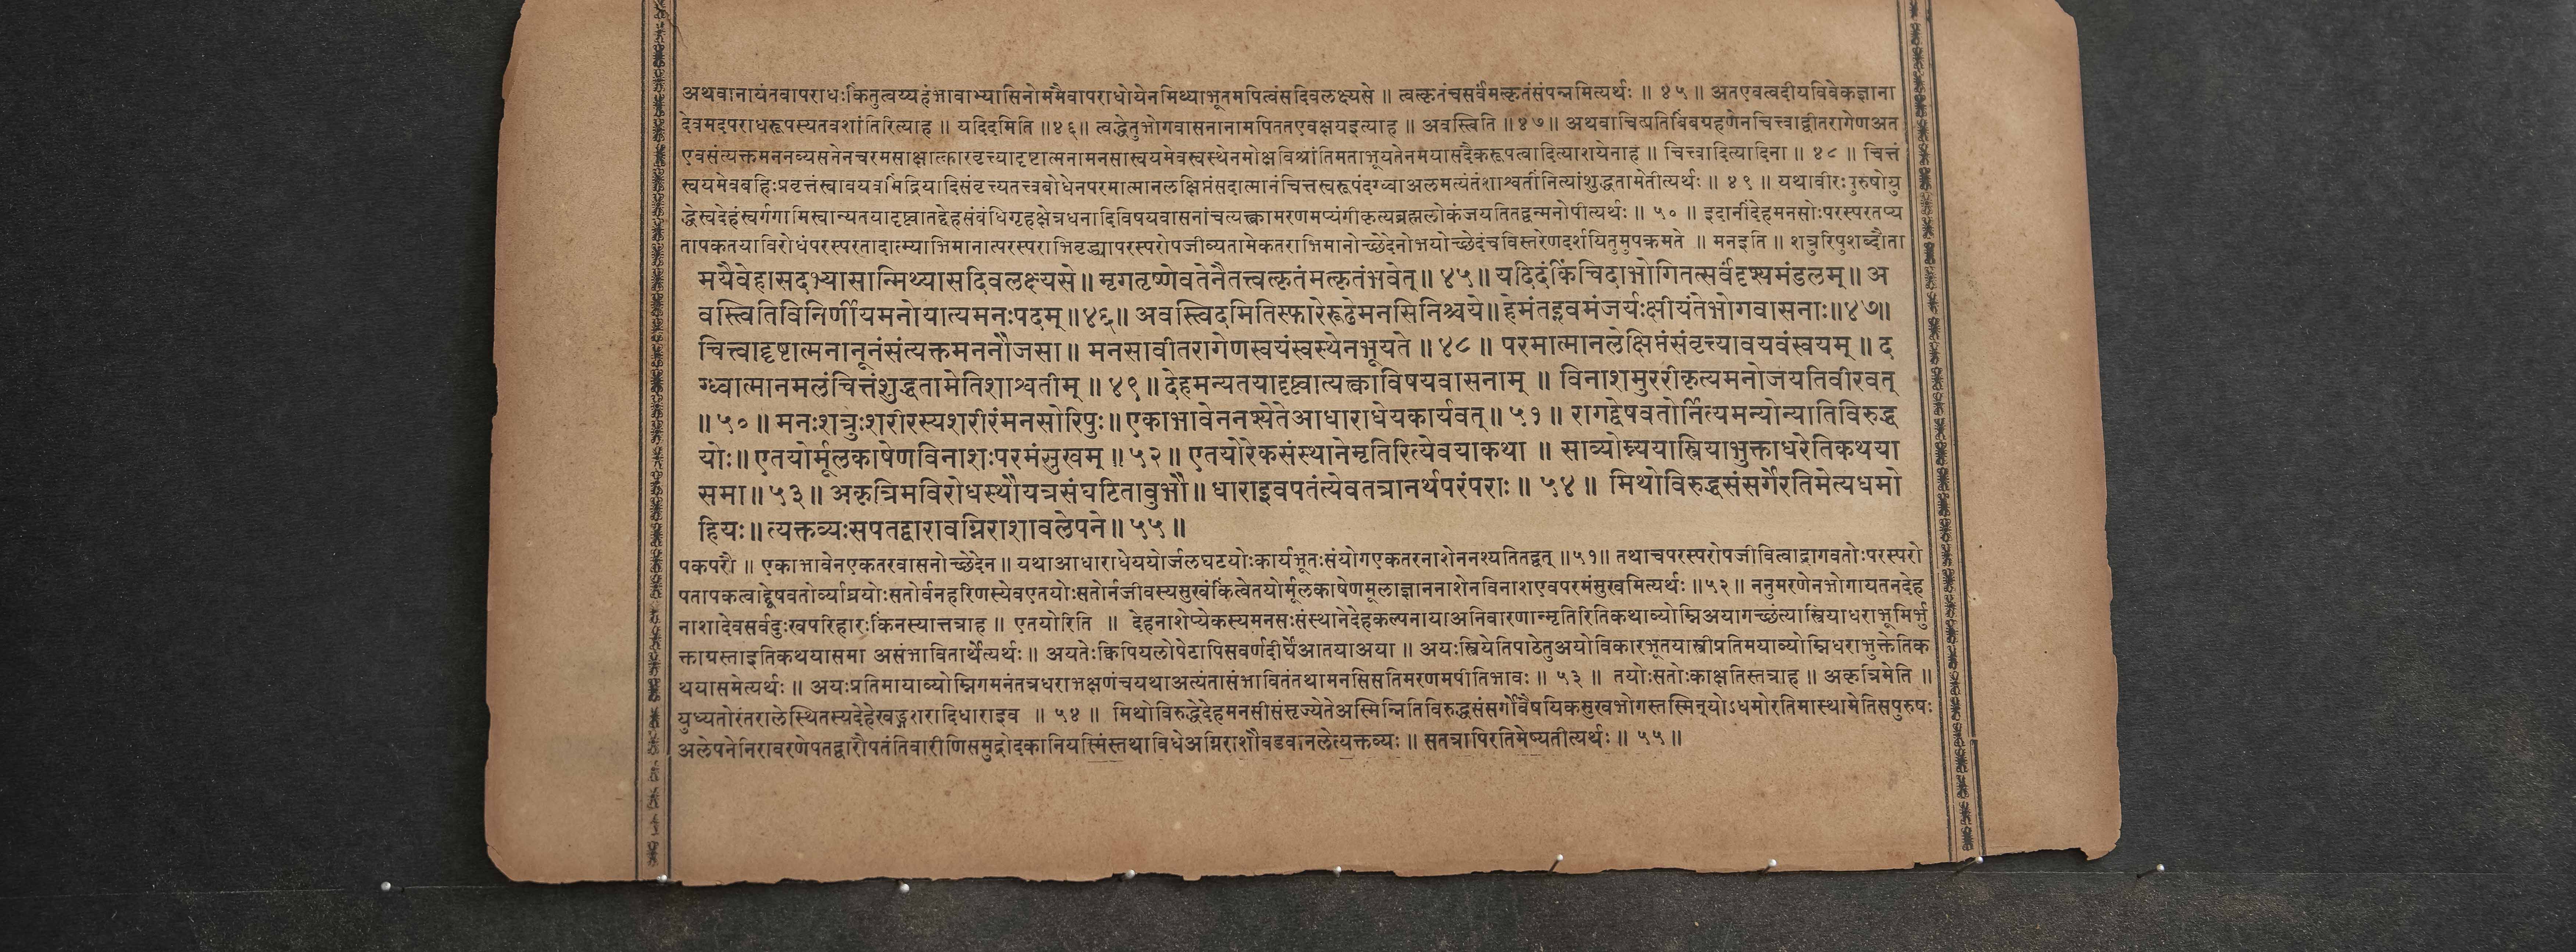 अथवानायंतवापराधःकिंतुत्वय्यहंभावाभ्यासिनोममैवापराधोयेनमिथ्याभूतमपित्वंसदिवलक्ष्यसे ॥ त्वत्कृतंचसर्वंमत्कृतंसंपन्नमित्यर्थः ॥ ४५ ॥ अतएवत्वदीयविवेकज्ञाना
देवमदपराधरूपस्यतवशांतिरित्याह ॥ यदिदमिति ॥४६॥ त्वद्धेतुभोगवासनानामपिततएवक्षयइत्याह ॥ अवस्त्विति ॥४७॥ अथवाचित्प्रतिबिंबग्रहणेनचित्त्वाद्वीतरागेणअत
एवसंत्यक्तमननव्यसनेनचरमसाक्षात्कारवृत्त्यादृष्टात्मनामनसास्वयमेवस्वस्थेनमोक्षविश्रांतिमताभूयतेनमयासदैकरूपत्वादित्याशयेनाह ॥ चित्त्वादित्यादिना ॥ ४८ ॥ चित्तं
स्वयमेवबहिःप्रवृत्तंस्वावयवमिंद्रियादिसंवृत्त्यतत्त्वबोधेनपरमात्मानलक्षिप्तंसदात्मानंचित्तस्वरूपंदग्ध्वाअलमत्यंतंशाश्वतींनित्यांशुद्धतामेतीत्यर्थः ॥ ४९ ॥ यथावीरःपुरुषोयु
द्धेस्वदेहंस्वर्गगामिस्वान्यतयादृष्ट्वातद्देहसंबंधिगृहक्षेत्रधनादिविषयवासनांचत्यक्त्वामरणमप्यंगीकृत्यब्रह्मलोकंजयतितद्वन्मनोपीत्यर्थः ॥ ५० ॥ इदानींदेहमनसोःपरस्परतप्य
तापकतयाविरोधंपरस्परतादात्म्याभिमानात्परस्पराभिवृद्ध्यापरस्परोपजीव्यतामेकतराभिमानोच्छेदेनोभयोच्छेदंचविस्तरेणदर्शयितुमुपक्रमते ॥ मनइति ॥ शत्रुरिपुशब्दौता
मयैवेहासदभ्यासान्मिथ्यासदिवलक्ष्यसे॥ मृगतृष्णेवतेनैतत्त्वत्कृतंमत्कृतंभवेत्॥ ४५॥ यदिदंकिंचिदाभोगितत्सर्वंदृश्यमंडलम्॥ अ
वस्त्वितिविनिर्णीयमनोयात्यमनःपदम्॥४६॥ अवस्त्विदमितिस्फारेरूढेमनसिनिश्चये॥हेमंतइवमंजर्यःक्षीयंतेभोगवासनाः॥४७॥
चित्त्वादृष्टात्मनानूनंसंत्यक्तमननौजसा॥ मनसावीतरागेणस्वयंस्वस्थेनभूयते ॥४८॥ परमात्मानलेक्षिप्तंसंवृत्त्यावयवंस्वयम्॥ द
ग्ध्वात्मानमलंचित्तंशुद्धतामेतिशाश्वतीम्॥ ४९॥ देहमन्यतयादृष्ट्वात्यक्त्वाविषयवासनाम् ॥ विनाशमुररीकृत्यमनोजयतिवीरवत्
॥५०॥ मनःशत्रुःशरीरस्यशरीरंमनसोरिपुः॥एकाभावेननश्येतेआधाराधेयकार्यवत्॥ ५१॥ रागद्वेषवतोर्नित्यमन्योन्यातिविरुद्ध
योः॥ एतयोर्मूलकाषेणविनाशःपरमंसुखम्॥५२॥ एतयोरेकसंस्थानेमृतिरित्येवयाकथा ॥ साव्योम्न्ययास्त्रियाभुक्ताधरेतिकथया
समा॥५३॥ अकृत्रिमविरोधस्थौयत्रसंघटितावुभौ॥ धाराइवपतंत्येवतत्रानर्थपरंपराः॥ ५४॥ मिथोविरुद्धसंसर्गेरतिमेत्यधमो
हियः॥ त्यक्तव्यःसपतद्वारावग्निराशावलेपने॥ ५५॥
पकपरौ ॥ एकाभावेनएकतरवासनोच्छेदेन॥ यथाआधाराधेययोर्जलघटयोःकार्यभूतःसंयोगएकतरनाशेननश्यतितद्वत् ॥५१॥ तथाचपरस्परोपजीवित्वाद्रागवतोःपरस्परो
पतापकत्वाद्द्वेषवतोर्व्याघ्रयोःसतोर्वनहरिणस्येवएतयोःसतोर्नजीवस्यसुखंकिंत्वेतयोर्मूलकाषेणमूलाज्ञाननाशेनविनाशएवपरमंसुखमित्यर्थः ॥५२॥ ननुमरणेनभोगायतनदेह
नाशादेवसर्वदुःखपरिहारःकिंनस्यात्तत्राह ॥ एतयोरिति ॥ देहनाशेप्येकस्यमनसःसंस्थानेदेहकल्पनायाअनिवारणान्मृतिरितिकथाव्योम्निअयागच्छंत्यास्त्रियाधराभूमिर्भु
क्ताग्रस्ताइतिकथयासमा असंभावितार्थेत्यर्थः॥ अयतेःक्विपियलोपेटापिसवर्णदीर्घेआतयाअया ॥ अयःस्त्रियेतिपाठेतुअयोविकारभूतयास्त्रीप्रतिमयाव्योम्निधराभुक्तेतिक
थयासमेत्यर्थः ॥ अयःप्रतिमायाव्योम्निगमनंतत्रधराभक्षणंचयथाअत्यंतासंभावितंतथामनसिसतिमरणमपीतिभावः ॥ ५३ ॥ तयोःसतोःकाक्षतिस्तत्राह ॥ अकृत्रिमेति ॥
युध्यतोरंतरालेस्थितस्यदेहेखड्गशरादिधाराइव ॥ ५४ ॥ मिथोविरुद्धेदेहमनसीसंसृज्येतेअस्मिन्नितिविरुद्धसंसर्गोवैषयिकसुखभोगस्तस्मिन्योऽधमोरतिमास्थामेतिसपुरुषः
अलेपनेनिरावरणेपतद्वारौपतंतिवारीणिसमुद्रोदकानियस्मिंस्तथाविधेअग्निराशौवडवानलेत्यक्तव्यः ॥ सतत्रापिरतिमेष्यतीत्यर्थः ॥ ५५ ॥